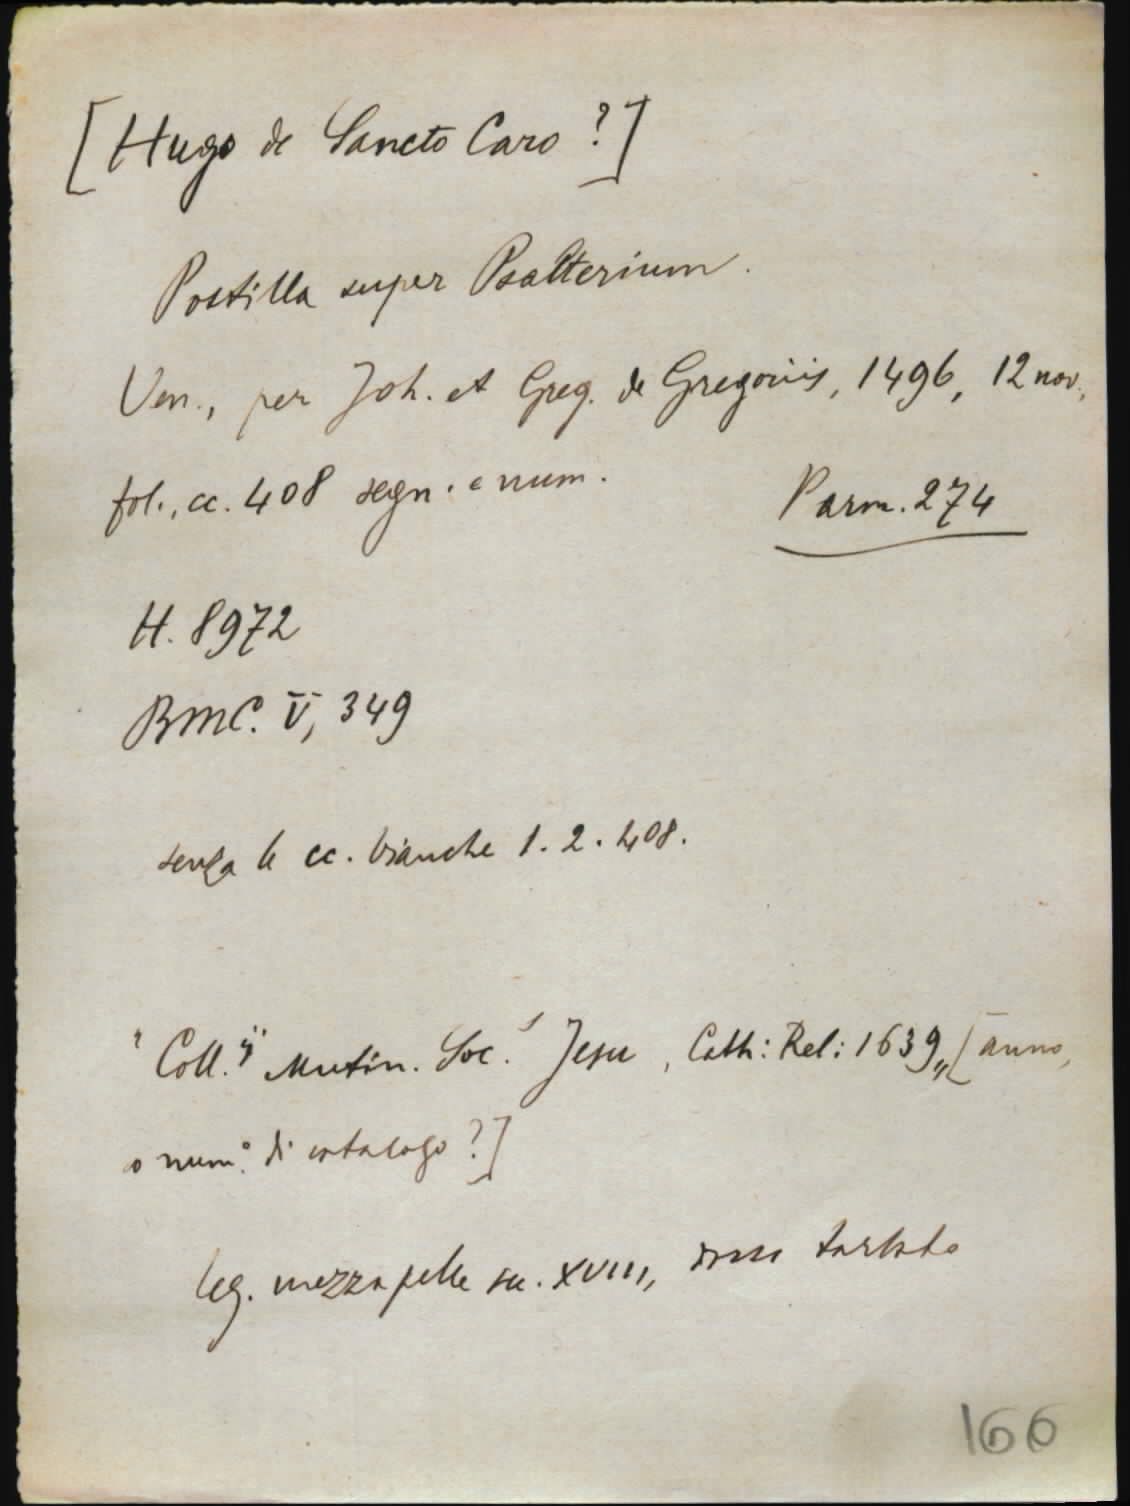 [Hugo de Sancto Caro?]
Postilla super Psalterium.
Ven., per Joh. et Greg. de Gregoriis, 1496, 12 nov.,
fol., cc. 408 segn. e num.
Parm. 274
H. 8972
BMC. V, 349
senza le cc. bianche 1. 2. 408.
"Coll.ij Mutin. Soc.s Jesu, Cath: Rel: 1639" [anno,
o num.° di catalogo?]
leg. mezza pelle sec. XVIII, dorso tarlato
166